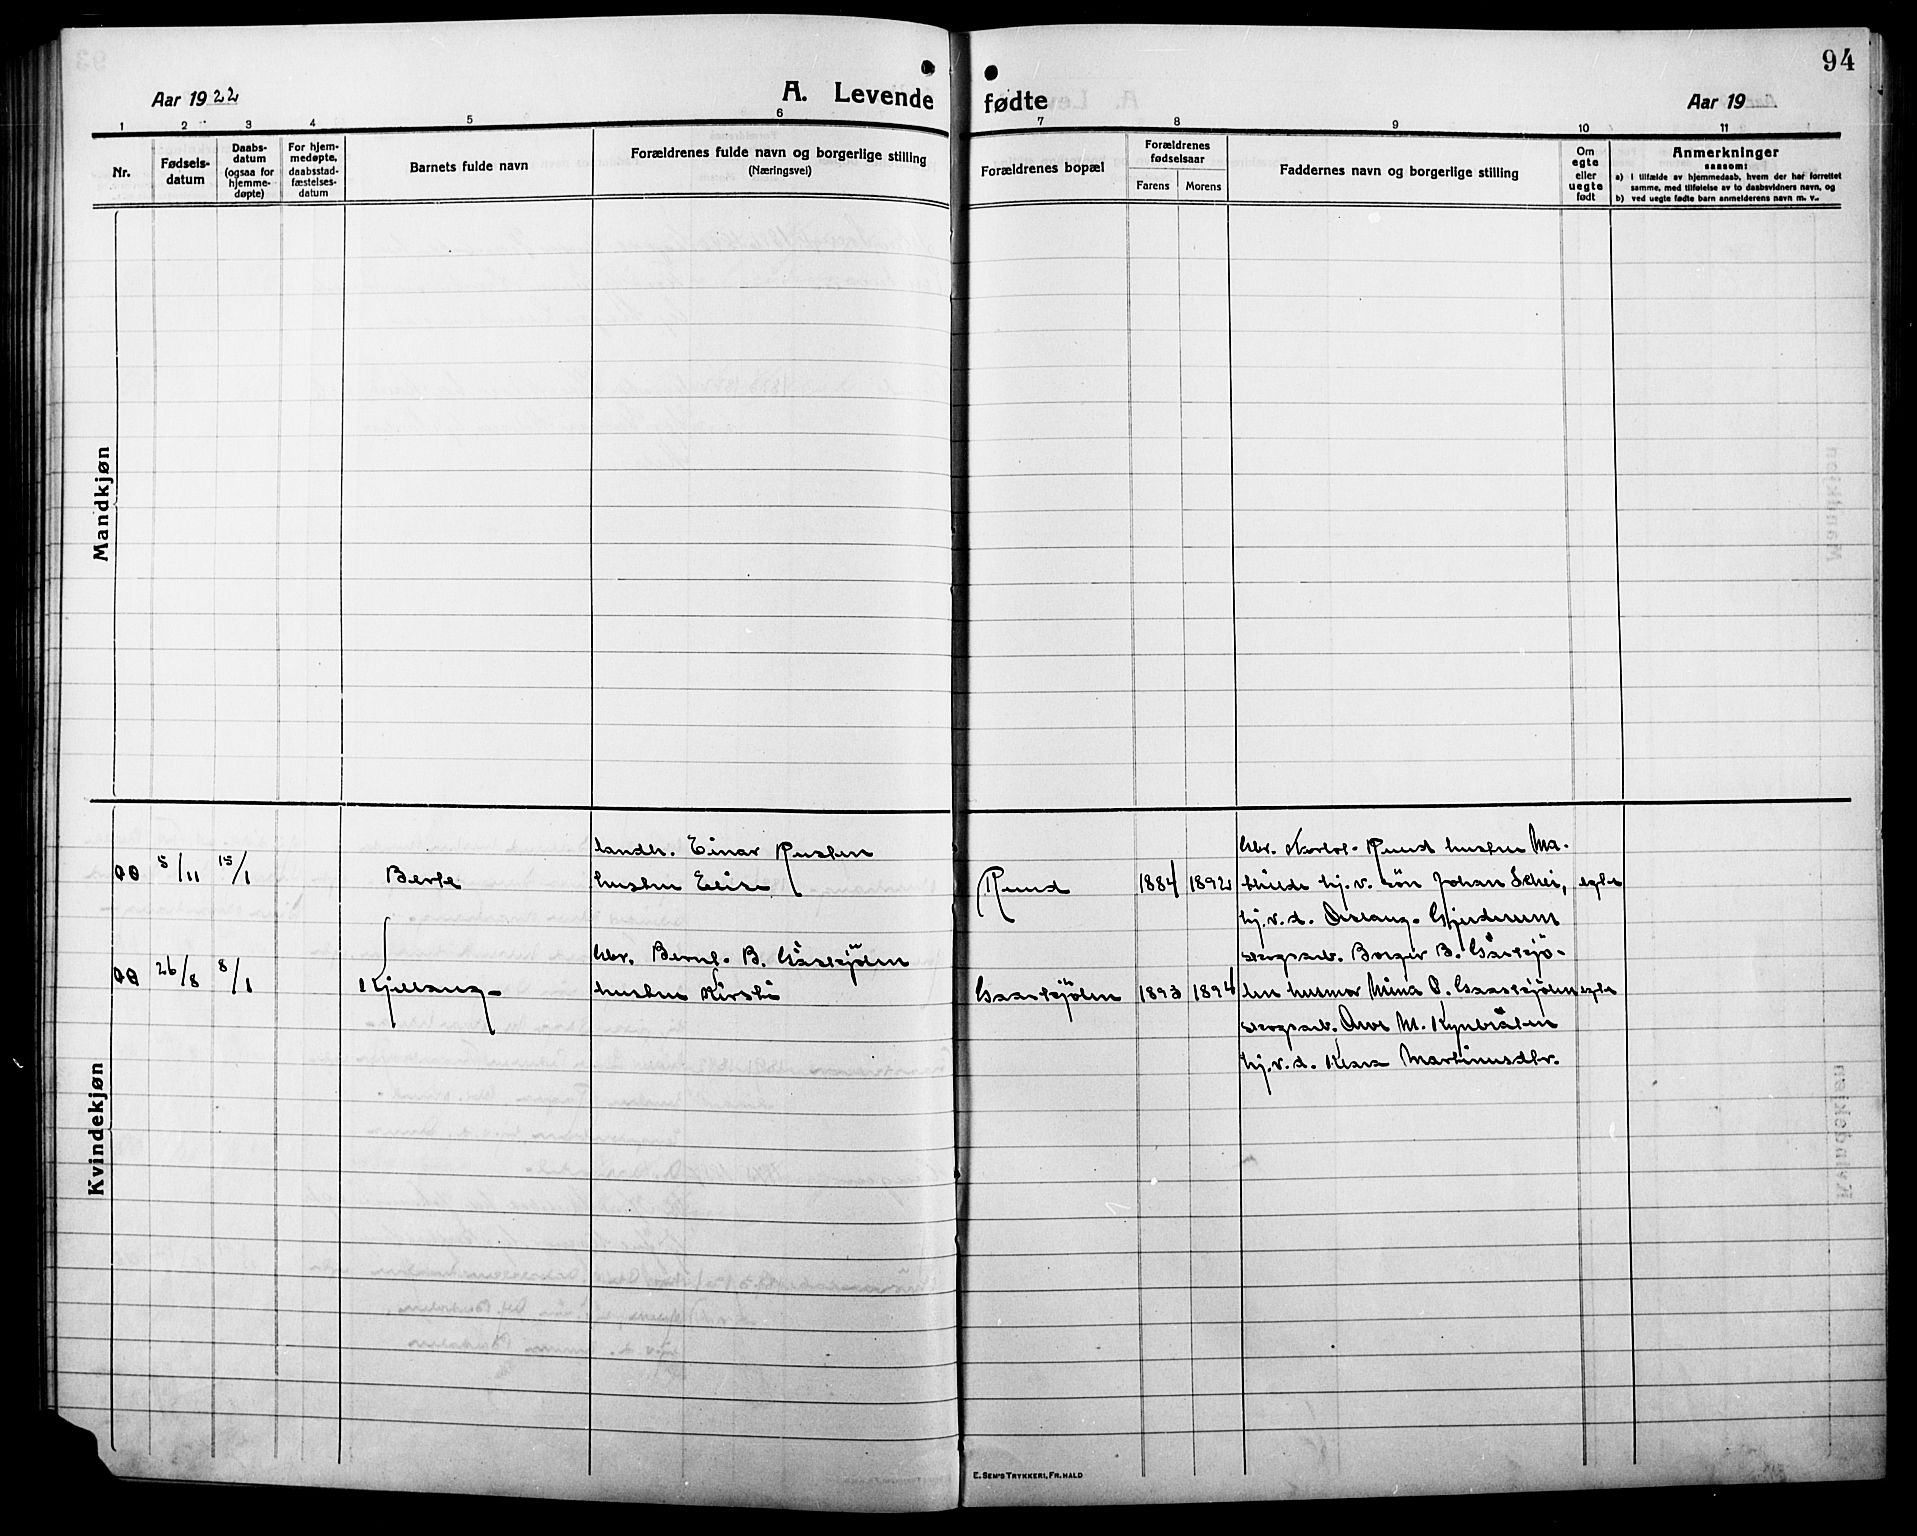 94
Aar 1922
A. Levende
fødte
Aar 19
1 2 3 4 5 6 7 8 9 10 11
Nr.
Fødsels-
datum
Daabs-
datum
(ogsaa for
hjemme-
døpte)
For hjem-
medøpte,
daabsstad-
fæstelses-
datum
Barnets fulde navn
Forældrenes fulde navn og borgerlige stilling
(Næringsvei)
Forældrenes bopæl
Forældrenes
fødselsaar
Farens Morens
Faddernes navn og borgerlige stilling
Om
egte
eller
uegte
født
Anmerkninger
saasom:
a) i tilfælde av hjemmedaab, hvem der har forrettet
samme, med tilføielse av to daabsvidners navn, og
b) ved uegte fødte barn anmelderens navn m. v.
Mandkjøn
Kvindekjøn
5/11 15/1
Berte
landh. Einar Rusten
hustru Elise
Ruud
1884 1892
gbr. Ruud hustru Ma-
thilde hj.v. søn Johan Schei,
hj.v.d. Aslaug Gjesdrum
egte
26/8 8/1
Kjellaug
gbr. Bernt B. Gåskjølen
hustru Kirsti
Gaaskjølen
1893 1894
skogsarb. Borger B. Gåskjø-
len husmor Mina O. Gaaskjølen
skogsarb. Arve M. Kynbråten
hj.v.d. Klara Martinusdtr.
egte
E. SEM'S TRYKKERI, FR.HALD